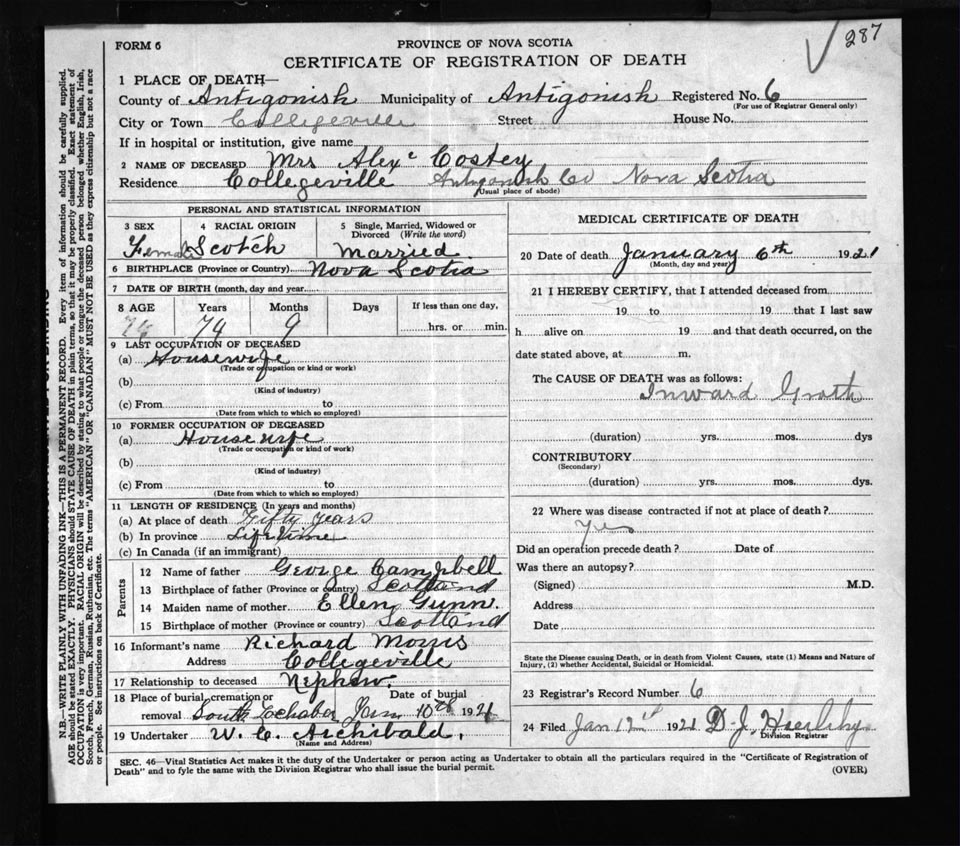 287
FORM 6
PROVINCE OF NOVA SCOTIA
CERTIFICATE OF REGISTRATION OF DEATH
1 PLACE OF DEATH—
County of Antigonish Municipality of Antigonish Registered No. 6
(For use of Registrar General only)
City or Town Collegeville Street House No.
If in hospital or institution, give name
2 NAME OF DECEASED Mrs Alexr Costey
Residence Collegeville Antigonish Co Nova Scotia
(Usual place of abode)
PERSONAL AND STATISTICAL INFORMATION
3 SEX 4 RACIAL ORIGIN 5 Single, Married, Widowed or Divorced (Write the word)
Female Scotch Married
6 BIRTHPLACE (Province or Country) Nova Scotia
7 DATE OF BIRTH (month, day and year)
8 AGE Years Months Days If less than one day,
74 74 9 hrs. or min.
9 LAST OCCUPATION OF DECEASED
(a) Housewife
(Trade or occupation or kind or work)
(b)
(Kind of industry)
(c) From to
(Date from which to which so employed)
10 FORMER OCCUPATION OF DECEASED
(a) Housewife
(Trade or occupation or kind of work)
(b)
(Kind of industry)
(c) From to
(Date from which to which so employed)
11 LENGTH OF RESIDENCE (In years and months)
(a) At place of death Fifty Years
(b) In province Lifetime
(c) In Canada (if an immigrant)
Parents
12 Name of father George Campbell
13 Birthplace of father (Province or country) Scotland
14 Maiden name of mother Ellen Gunn.
15 Birthplace of mother (Province or country) Scotland
16 Informant's name Richard Morris
Address Collegeville
17 Relationship to deceased Nephew.
18 Place of burial, cremation or Date of burial
removal South Lochaber Jan 10th 1921
19 Undertaker W. C. Archibald.
(Name and Address)
MEDICAL CERTIFICATE OF DEATH
20 Date of death January 6th 1921
(Month, day and year)
21 I HEREBY CERTIFY, that I attended deceased from
19 to 19 that I last saw
h alive on 19 and that death occurred, on the
date stated above, at m.
The CAUSE OF DEATH was as follows:
Inward Groth
(duration) yrs. mos. dys
CONTRIBUTORY
(Secondary)
(duration) yrs. mos. dys.
22 Where was disease contracted if not at place of death?
Yes
Did an operation precede death? Date of
Was there an autopsy?
(Signed) M.D.
Address
Date
State the Disease causing Death, or in death from Violent Causes, state (1) Means and Nature of
Injury, (2) whether Accidental, Suicidal or Homicidal.
23 Registrar's Record Number 6
24 Filed Jan 12th 1921 D. J.
Division Registrar
SEC. 46—Vital Statistics Act makes it the duty of the Undertaker or person acting as Undertaker to obtain all the particulars required in the "Certificate of Registration of
Death" and to fyle the same with the Division Registrar who shall issue the burial permit.
(OVER)
N.B.—WRITE PLAINLY WITH UNFADING INK—THIS IS A PERMANENT RECORD. Every item of information should be carefully supplied.
AGE should be stated EXACTLY. PHYSICIANS should STATE CAUSE OF DEATH in plain terms, so that it may be properly classified. Exact statement of
OCCUPATION is very important. RACIAL ORIGIN will be described by stating to what people or tongue the deceased person belonged whether English, Irish,
Scotch, French, German, Russian, Ruthenian, etc. The terms "AMERICAN" OR "CANADIAN" MUST NOT BE USED as they express citizenship but not a race
or people. See instructions on back of Certificate.